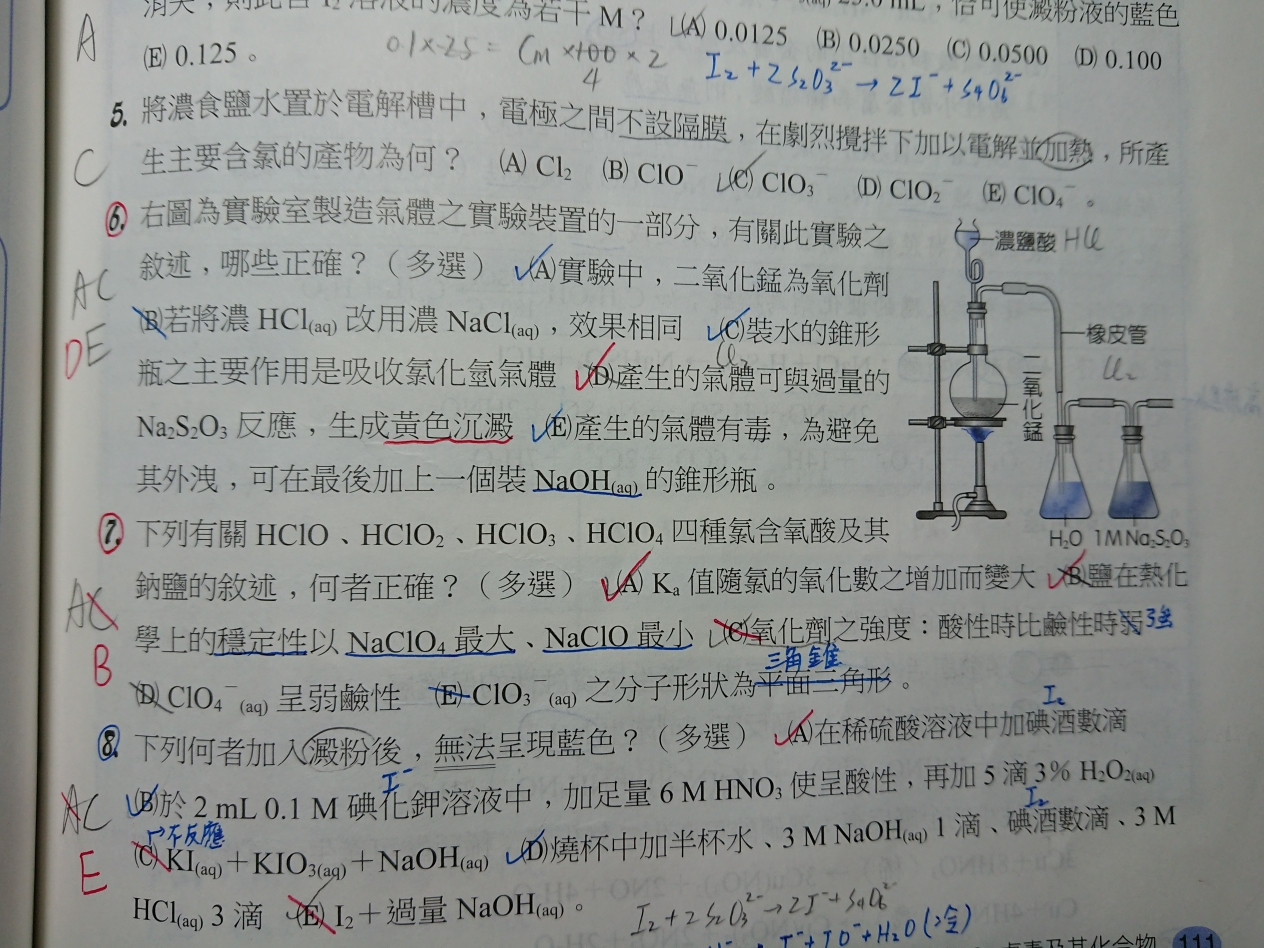 消失，則此含 I₂ 溶液的濃度為若干 M？ (A) 0.0125 (B) 0.0250 (C) 0.0500 (D) 0.100
(E) 0.125。
A
0.1×25 = CM × 100/4 × 2
I₂ + 2S₂O₃²⁻ → 2I⁻ + S₄O₆²⁻
5. 將濃食鹽水置於電解槽中，電極之間不設隔膜，在劇烈攪拌下加以電解並加熱，所產
生主要含氯的產物為何？ (A) Cl₂ (B) ClO⁻ (C) ClO₃⁻ (D) ClO₂⁻ (E) ClO₄⁻。
C
6. 右圖為實驗室製造氣體之實驗裝置的一部分，有關此實驗之
敘述，哪些正確？（多選） (A)實驗中，二氧化錳為氧化劑
(B)若將濃 HCl(aq) 改用濃 NaCl(aq)，效果相同 (C)裝水的錐形
瓶之主要作用是吸收氯化氫氣體 (D)產生的氣體可與過量的
Na₂S₂O₃ 反應，生成黃色沉澱 (E)產生的氣體有毒，為避免
其外洩，可在最後加上一個裝 NaOH(aq) 的錐形瓶。
AC
DE
濃鹽酸 HCl
橡皮管
Cl₂
二氧化錳
H₂O 1M Na₂S₂O₃
7. 下列有關 HClO、HClO₂、HClO₃、HClO₄ 四種氯含氧酸及其
鈉鹽的敘述，何者正確？（多選） (A) Kₐ 值隨氯的氧化數之增加而變大 (B)鹽在熱化
學上的穩定性以 NaClO₄ 最大、NaClO 最小 (C)氧化劑之強度：酸性時比鹼性時弱 強
三角錐
(D) ClO₄⁻(aq) 呈弱鹼性 (E) ClO₃⁻(aq) 之分子形狀為平面三角形。
AC
B
I₂
8. 下列何者加入澱粉後，無法呈現藍色？（多選） (A)在稀硫酸溶液中加碘酒數滴
I⁻
(B)於 2 mL 0.1 M 碘化鉀溶液中，加足量 6 M HNO₃ 使呈酸性，再加 5 滴 3% H₂O₂(aq)
不反應
I₂
(C) KI(aq)＋KIO₃(aq)＋NaOH(aq) (D)燒杯中加半杯水、3 M NaOH(aq) 1 滴、碘酒數滴、3 M
HCl(aq) 3 滴 (E) I₂＋過量 NaOH(aq)。
AC
E
I₂ + 2S₂O₃²⁻ → 2I⁻ + S₄O₆²⁻
I⁻ + IO⁻ + H₂O (冷)
鹵素及其化合物 111